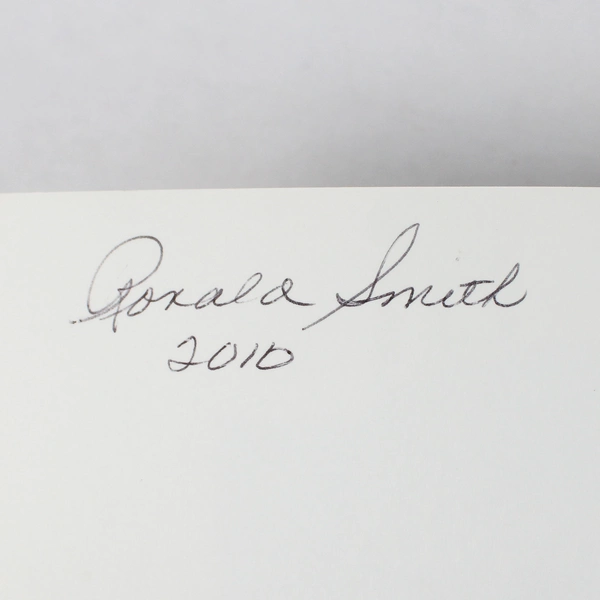 Ronald Smith
2010